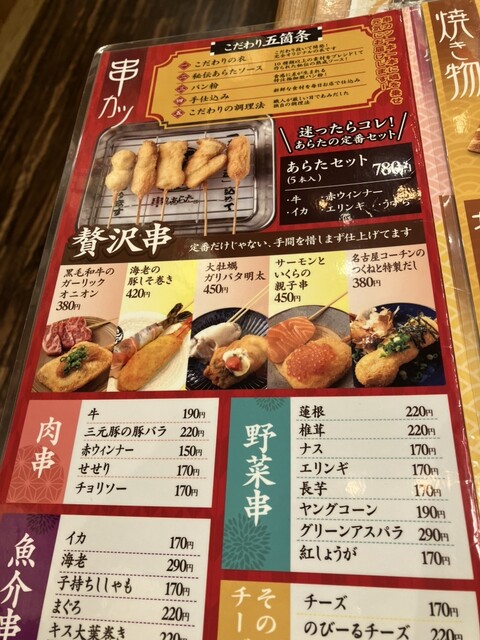 串カツ
こだわり五箇条
一 こだわりの衣
秘伝あらたソース
パン粉
手仕込み
こだわりの調理法
迷ったらコレ!
あらたの定番セット
あらたセット 780円
(5本入)
・牛 ・赤ウィンナー
・イカ ・エリンギ ・うずら
贅沢串 定番だけじゃない、手間を惜しまず仕上げてます
黒毛和牛の
ガーリック
オニオン
380円
海老の
豚しそ巻き
420円
大牡蠣
ガリバタ明太
450円
サーモンと
いくらの
親子串
450円
名古屋コーチンの
つくねと特製だし
380円
肉串
牛 190円
三元豚の豚バラ 220円
赤ウィンナー 150円
せせり 170円
チョリソー 170円
野菜串
蓮根 220円
椎茸 220円
ナス 170円
エリンギ 170円
長芋 170円
ヤングコーン 190円
グリーンアスパラ 290円
紅しょうが 170円
魚介串
イカ 170円
海老 290円
子持ちししゃも 170円
まぐろ 220円
キス大葉巻き 220円
チーズ 170円
のびーるチーズ 220円
焼き物